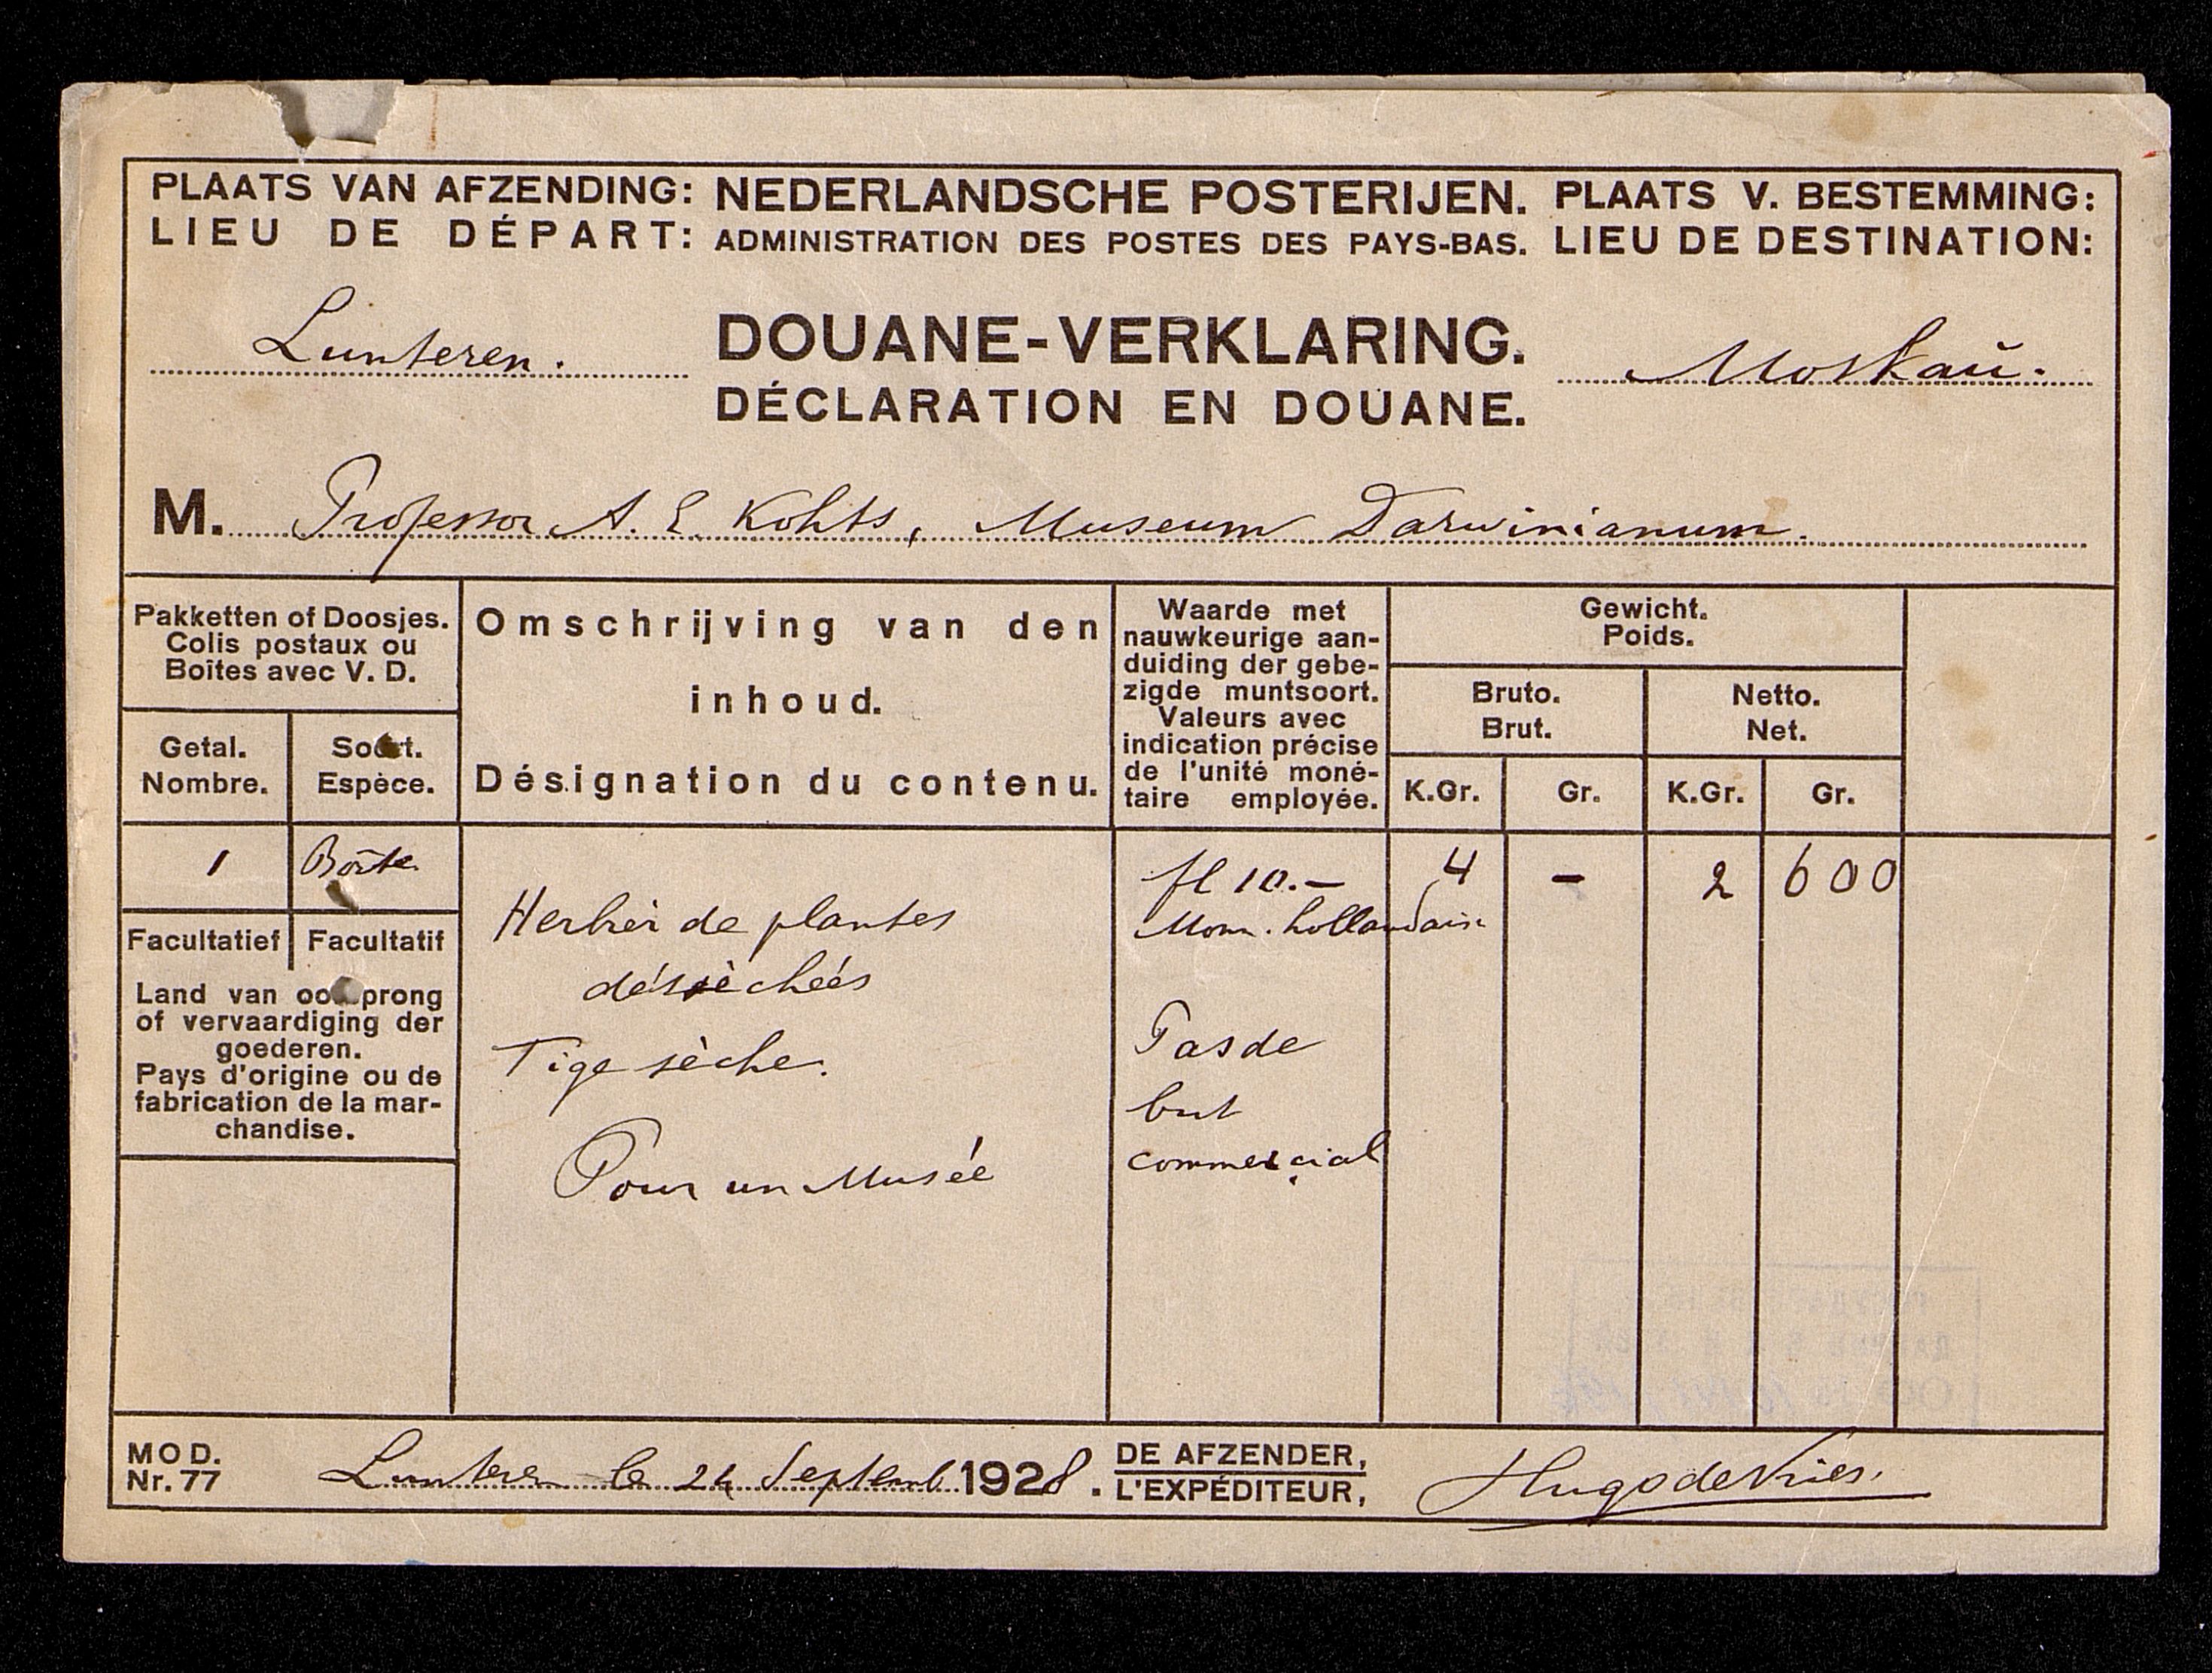 PLAATS VAN AFZENDING:
LIEU DE DÉPART:
Lunteren.
NEDERLANDSCHE POSTERIJEN.
ADMINISTRATION DES POSTES DES PAYS-BAS.
DOUANE-VERKLARING.
DÉCLARATION EN DOUANE.
PLAATS V. BESTEMMING:
LIEU DE DESTINATION:
Moskaŭ.
M. Professor A. E. Kohts, Museum Darwinianum.
Pakketten of Doosjes.
Colis postaux ou
Boîtes avec V. D.
Getal.
Nombre.
Soort.
Espèce.
Omschrijving van den
inhoud.
Désignation du contenu.
Waarde met
nauwkeurige aan-
duiding der gebe-
zigde muntsoort.
Valeurs avec
indication précise
de l'unité moné-
taire employée.
Gewicht.
Poids.
Bruto.
Brut.
Netto.
Net.
K.Gr.
Gr.
K.Gr.
Gr.
1
Boîte
Facultatief
Facultatif
Land van oorsprong
of vervaardiging der
goederen.
Pays d'origine ou de
fabrication de la mar-
chandise.
Herbier de plantes
désséchéés
Tige sèche.
Pour un Musée
fl 10.-
Monn. hollandaise
Pas de
but
commercial
4
-
2
600
MOD.
Nr. 77
Lunteren le 24 Septemb 1928.
DE AFZENDER,
L'EXPÉDITEUR,
Hugo de Vries.